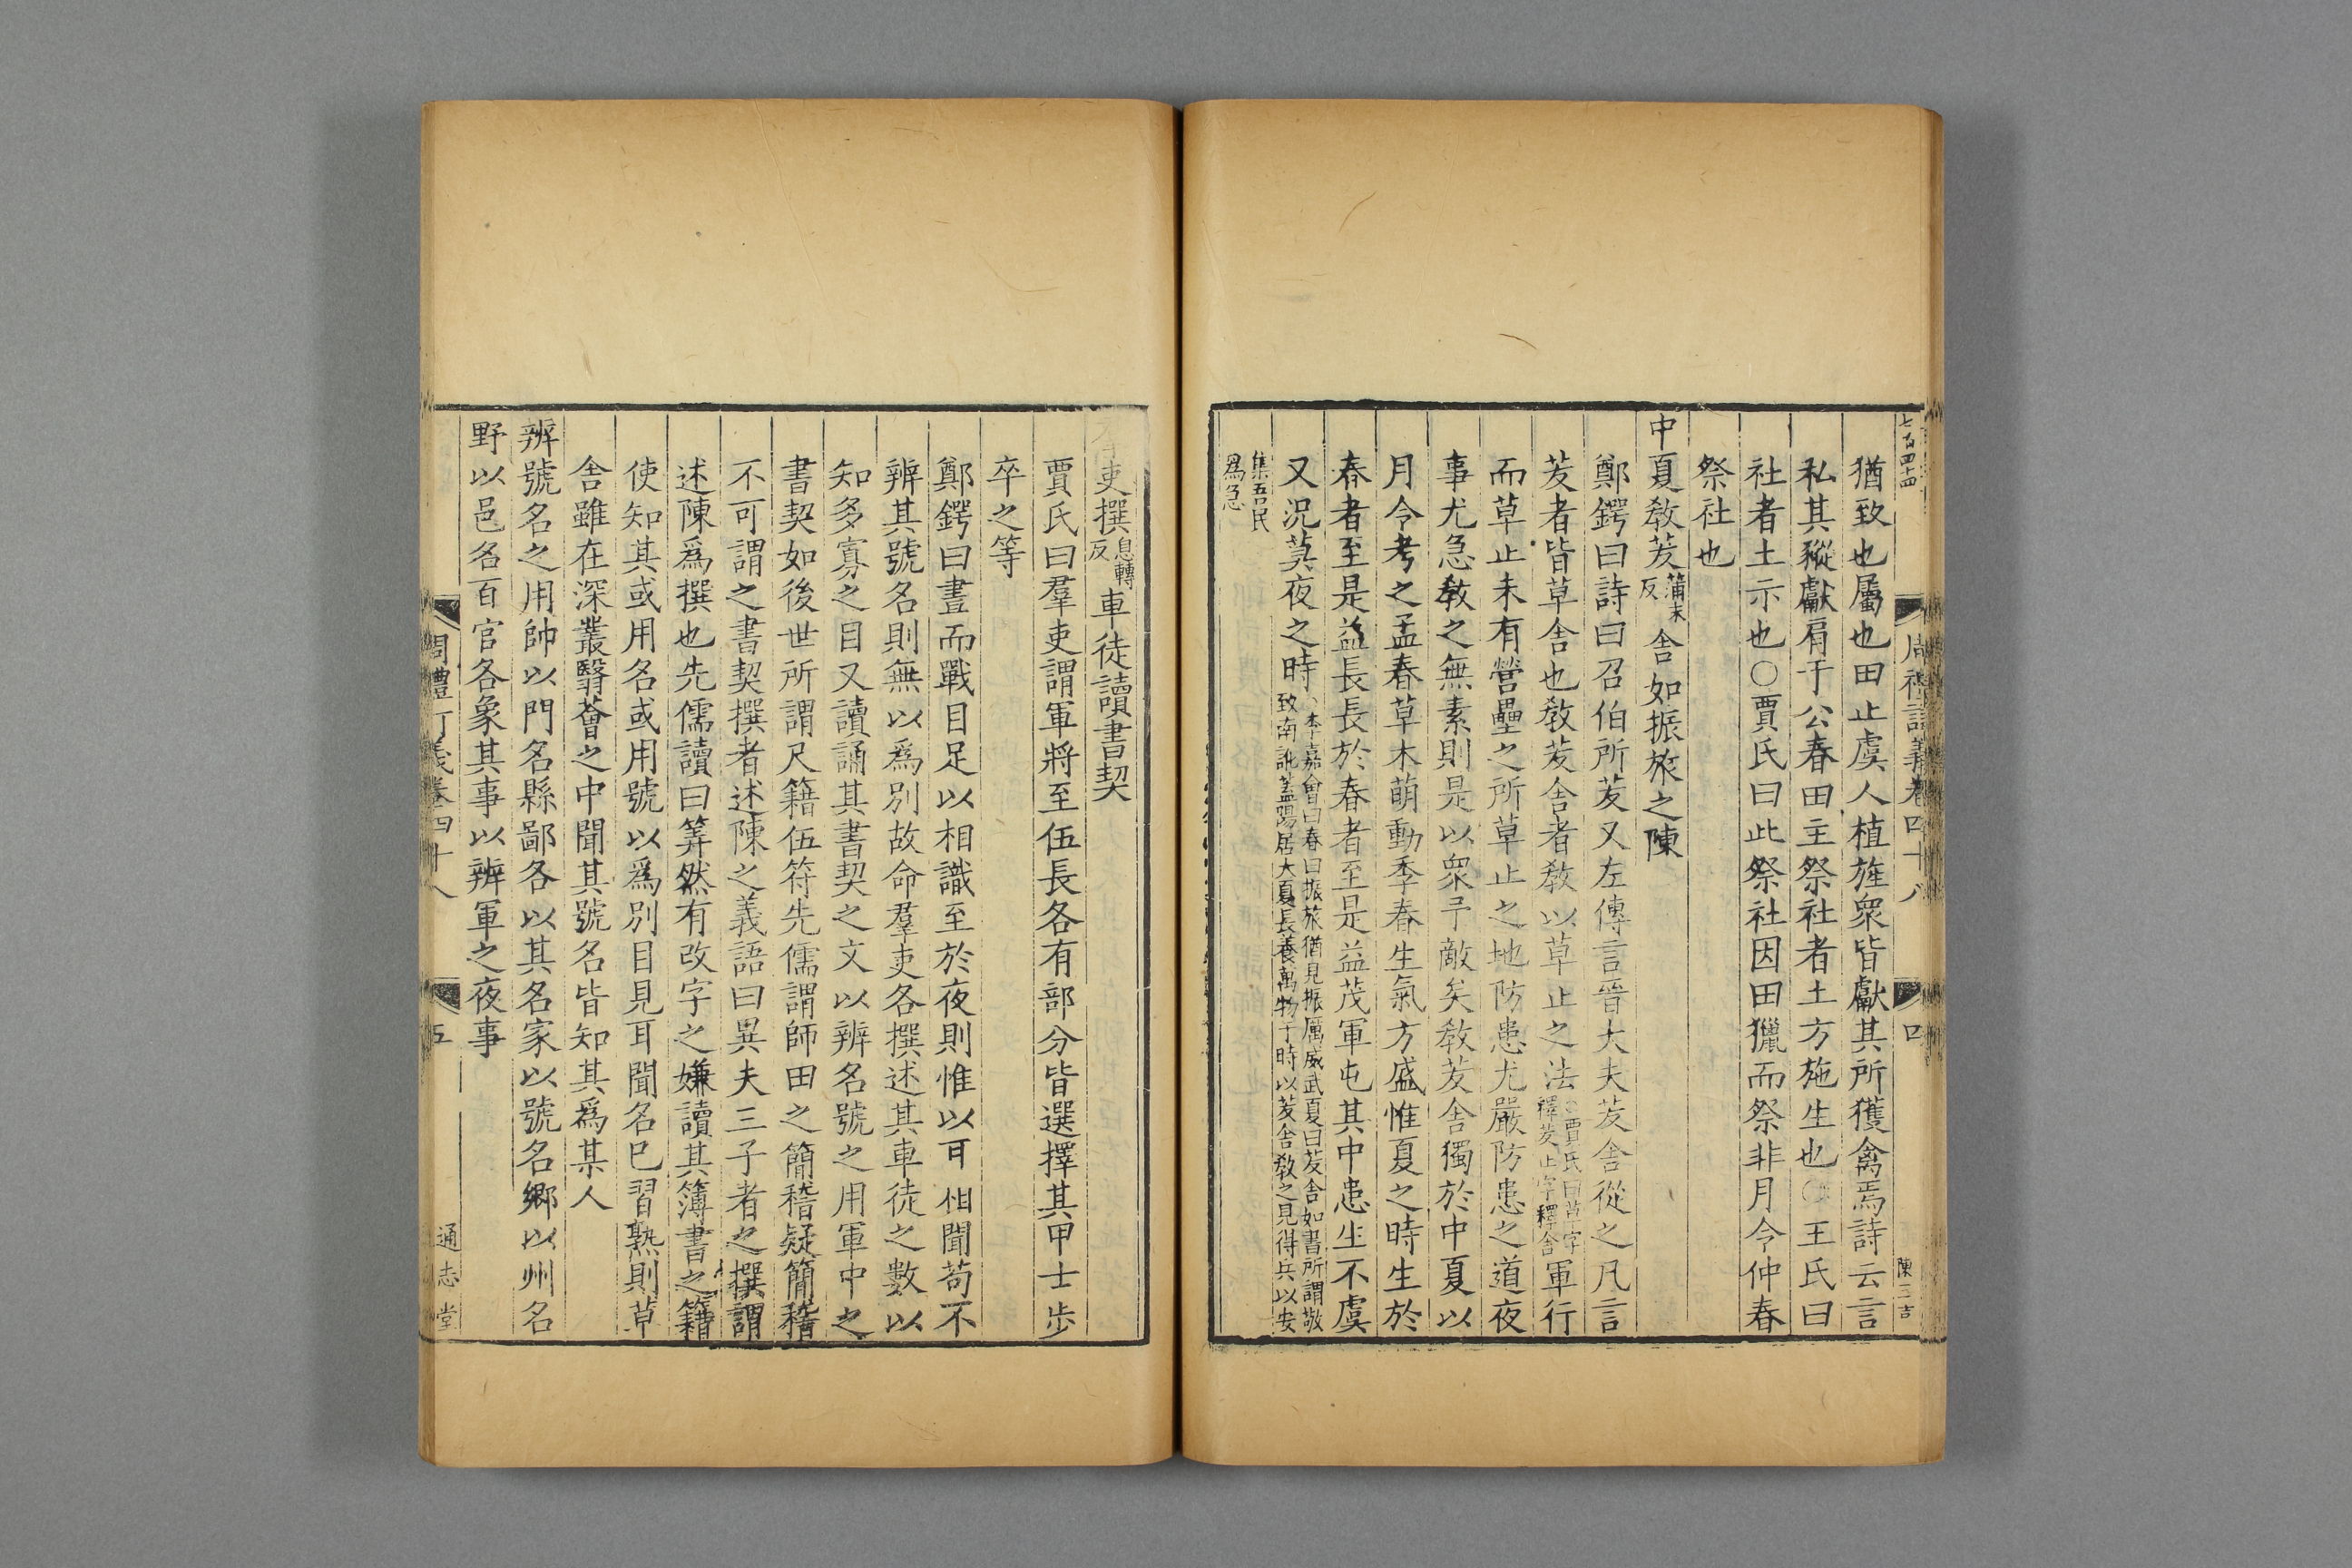 七百四十四
周禮訂義卷四十八
四
陳三吉
猶致也屬也田止虞人植旌衆皆獻其所獲禽焉詩云言
私其豵獻肩于公春田主祭社者土方施生也○王氏曰
社者土示也○賈氏曰此祭社因田獵而祭非月令仲春
祭社也
中夏敎茇蒲末反舍如振旅之陳
鄭鍔曰詩曰召伯所茇又左傳言晉大夫茇舍從之凡言
茇者皆草舍也敎茇舍者敎以草止之法○賈氏曰草字釋茇止字釋舍軍行
而草止未有營壘之所草止之地防患尤嚴防患之道夜
事尤急敎之無素則是以衆予敵矣敎茇舍獨於中夏以
月令考之孟春草木萌動季春生氣方盛惟夏之時生於
春者至是益長長於春者至是益茂軍屯其中患生不虞
又況莫夜之時、李嘉會曰春曰振旅猶見振厲威武夏曰茇舍如書所謂敬
致南訛蓋陽居大夏長養萬物于時以茇舍敎之見得兵以安
集吾民
爲急
吏撰息轉反車徒讀書契
賈氏曰羣吏謂軍將至伍長各有部分皆選擇其甲士步
卒之等
鄭鍔曰晝而戰目足以相識至於夜則惟以耳相聞苟不
辨其號名則無以爲別故命羣吏各撰述其車徒之數以
知多寡之目又讀誦其書契之文以辨名號之用軍中之
書契如後世所謂尺籍伍符先儒謂師田之簡稽疑簡稽
不可謂之書契撰者述陳之義語曰異夫三子者之撰謂
述陳爲撰也先儒讀曰筭然有改字之嫌讀其簿書之籍
使知其或用名或用號以爲別目見耳聞名巳習熟則草
舍雖在深叢翳薈之中聞其號名皆知其爲某人
辨號名之用帥以門名縣鄙各以其名家以號名鄉以州名
野以邑名百官各象其事以辨軍之夜事
周禮訂義卷四十八
五
通志堂